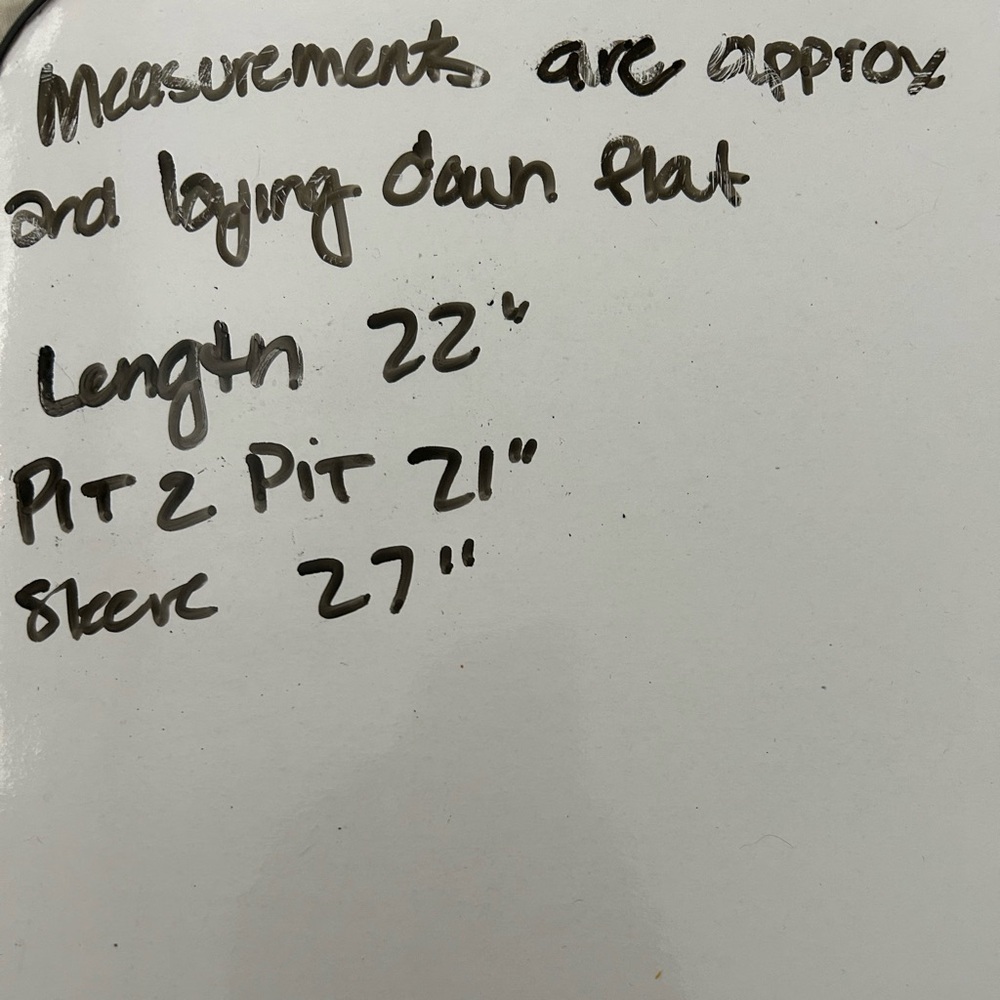 Measurements are approx
and laying down flat
Length 22"
PIT 2 PiT 21"
Sleeve 27"